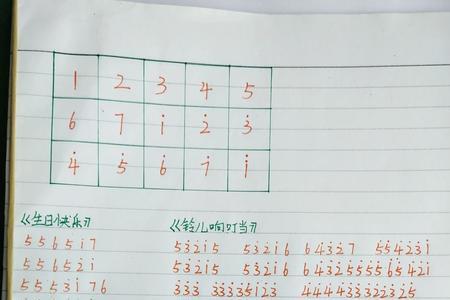 1 2 3 4 5
6 7 1̇ 2̇ 3̇
4̇ 5̇ 6̇ 7̇ 1̇
《生日快乐》 《铃儿响叮当》
5 5 6 5 1̇ 7 5 3̇ 2̇ 1̇ 5 5 3̇ 2̇ 1̇ 6 6 4̇ 3̇ 2̇ 7 5̇ 5̇ 4̇ 2̇ 3̇ 1̇
5 5 6 5 2̇ 1̇ 5 3̇ 2̇ 1̇ 5 5 3̇ 2̇ 1̇ 6 6 4̇ 3̇ 2̇ 5̇ 5̇ 5̇ 5̇ 6̇ 5̇ 4̇ 2̇ 1̇
5 5 5̇ 3̇ 1̇ 7 6 3̇ 3̇ 3̇ 3̇ 3̇ 3̇ 3̇ 5̇ 1̇ 2̇ 3̇ 4̇ 4̇ 4̇ 4̇ 3̇ 3̇ 3̇ 2̇ 2̇ 3̇ 2̇ 5̇